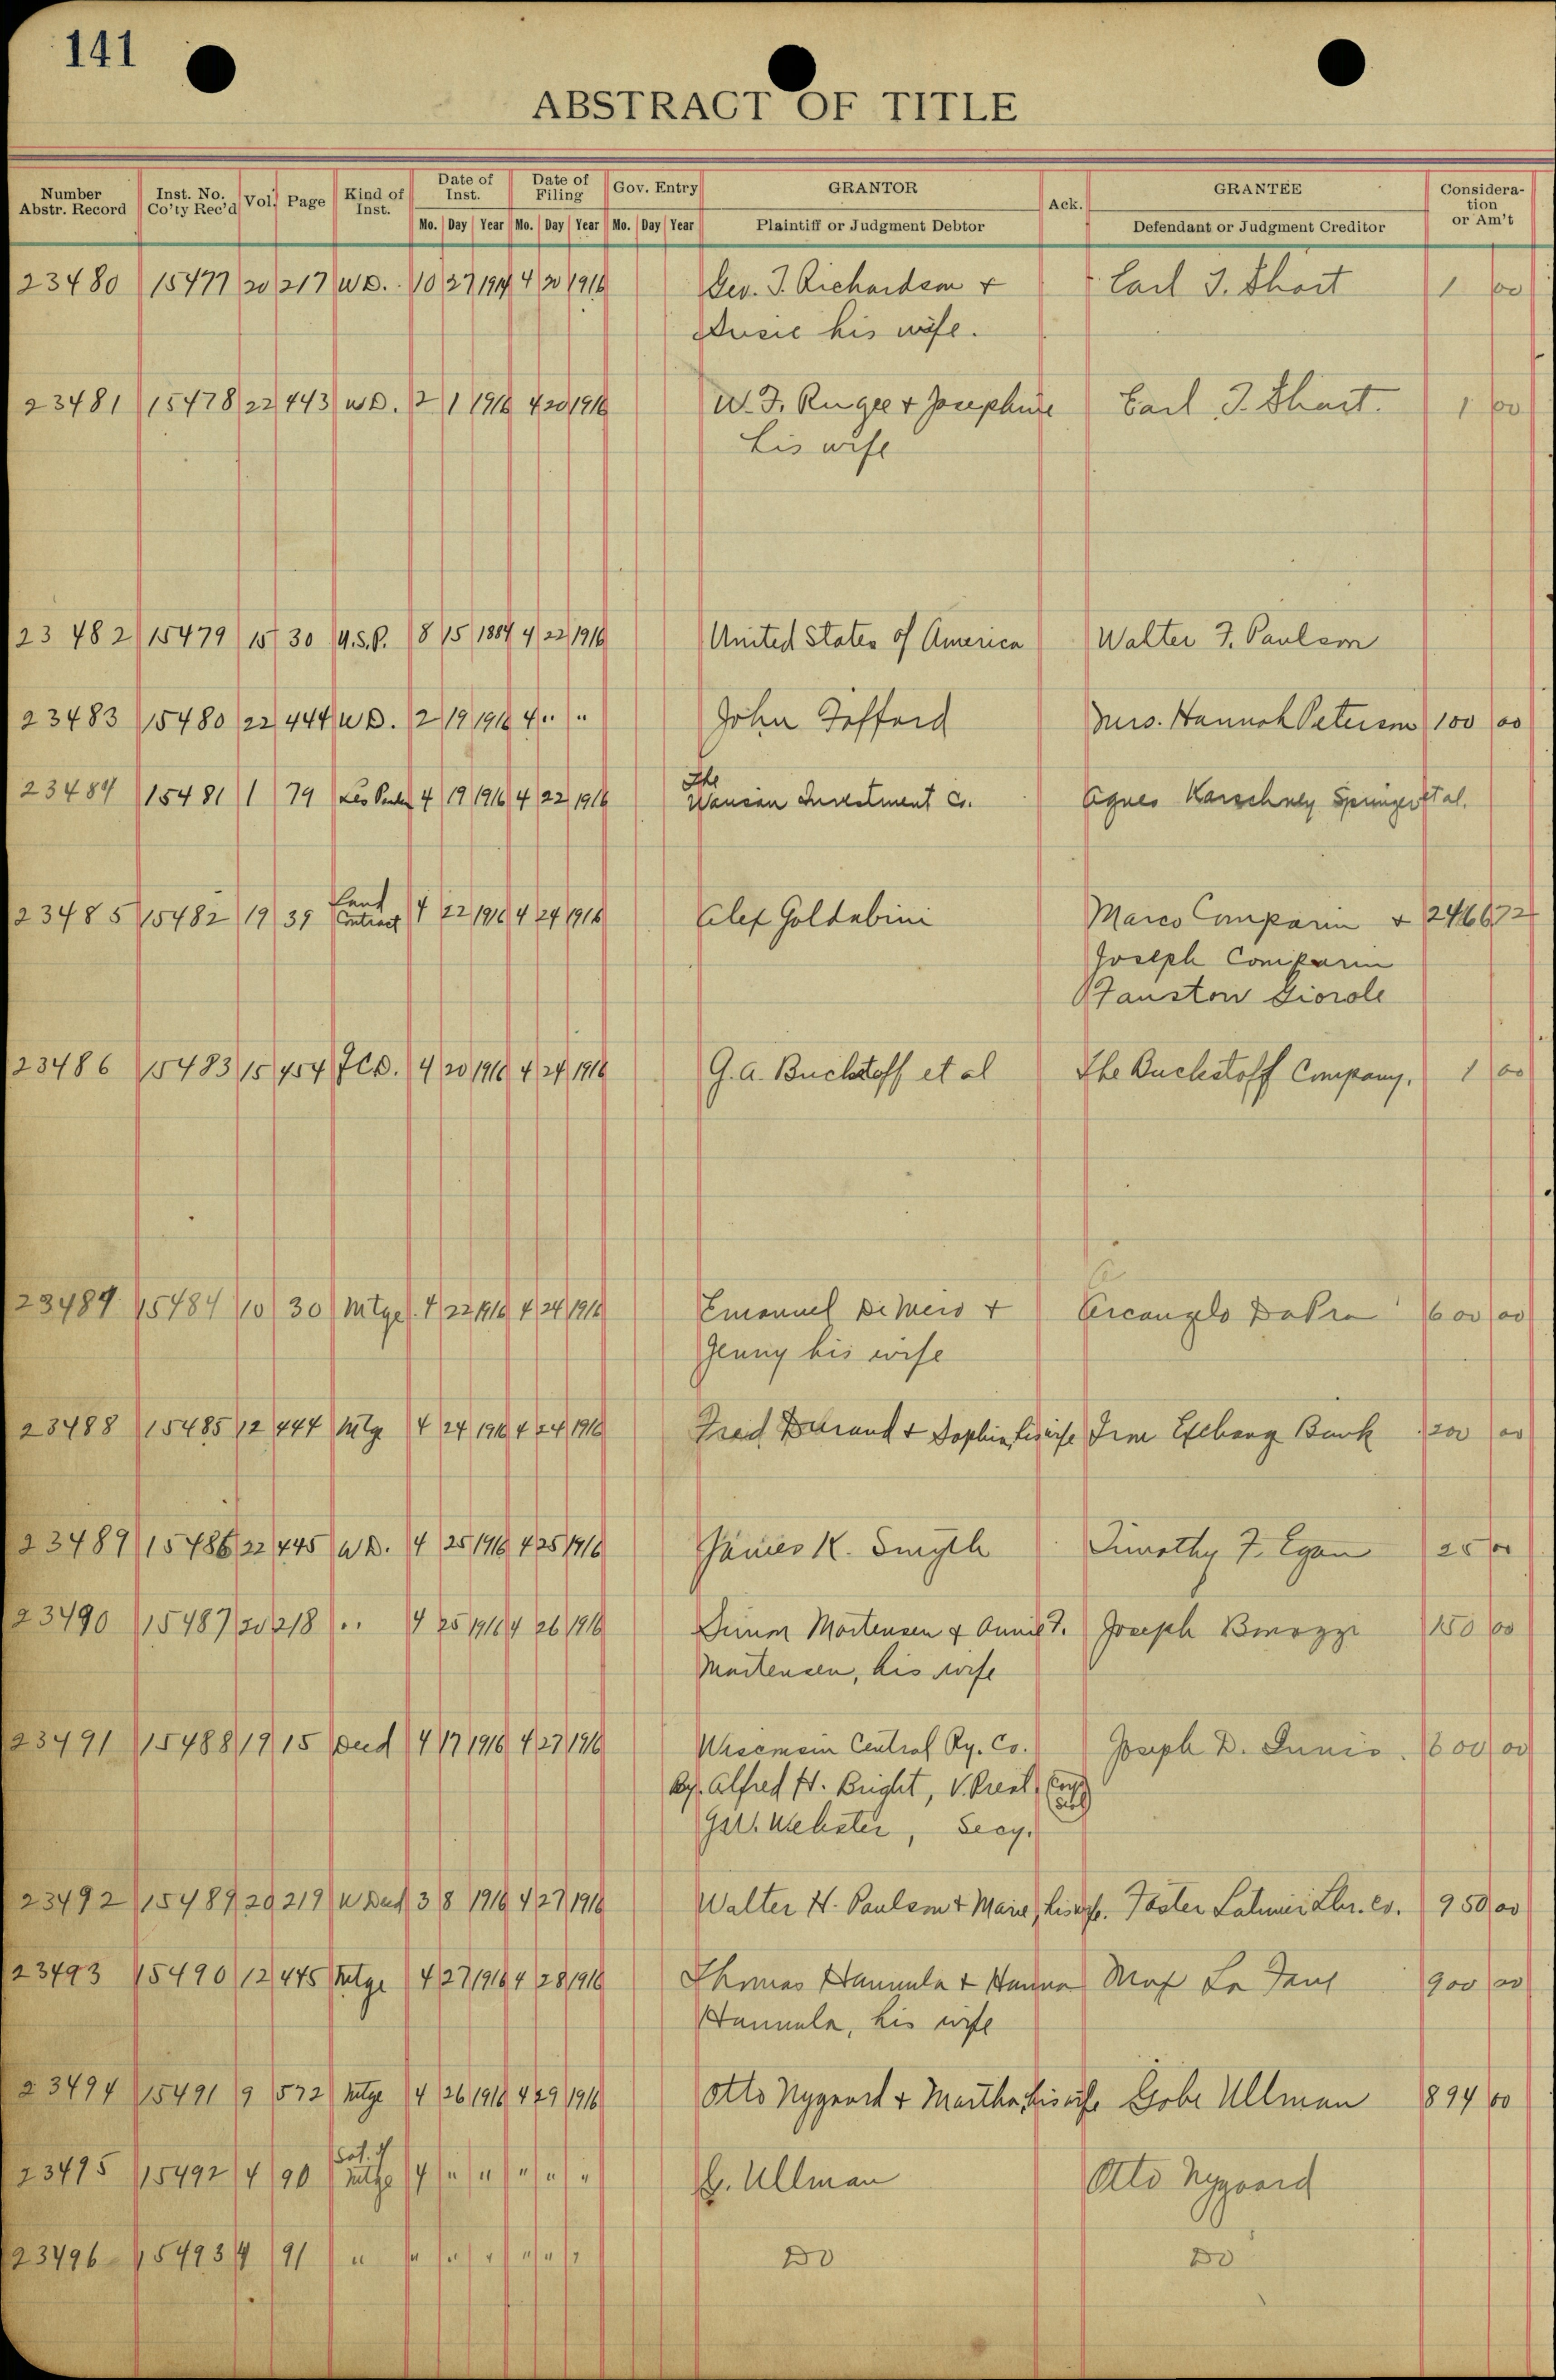 141
ABSTRACT OF TITLE
Number Abstr. Record Inst. No. Co'ty Rec'd Vol. Page Kind of Inst. Date of Inst. Date of Filing Gov. Entry GRANTOR Ack. GRANTEE Consideration or Am't
Mo. Day Year Mo. Day Year Mo. Day Year Plaintiff or Judgment Debtor Defendant or Judgment Creditor
23480 15477 20 217 W.D. 10 27 1914 4 20 1916 Geo. T. Richardson + Earl T. Short 1 00
Susie his wife.
23481 15478 22 443 W.D. 2 1 1916 4 20 1916 W. F. Rugee + Josephine Earl T. Short. 1 00
his wife
23482 15479 15 30 U.S.P. 8 15 1884 4 22 1916 United States of America Walter F. Paulson
23483 15480 22 444 W.D. 2 19 1916 4 " " John Tofford Mrs. Hannah Peterson 100 00
23484 15481 1 79 Lis Penden 4 19 1916 4 22 1916 The
Wausau Investment Co. Agnes Karschney Springer et al.
23485 15482 19 39 Land Contract 4 22 1916 4 24 1916 Alex Goldabini Marco Comparin + 2466 72
Joseph Comparin
Fauston Giorole
23486 15483 15 454 2CD. 4 20 1916 4 24 1916 G. A. Buckstaff et al The Buckstaff Company. 1 00
23487 15484 10 30 Mtge. 4 22 1916 4 24 1916 Emanuel De Meio + Arcangelo DaPra 600 00
Jenny his wife
23488 15485 12 444 Mtg 4 24 1916 4 24 1916 Fred Durand + Sophia, his wife Iron Exchang Bank 200 00
23489 15486 22 445 W.D. 4 25 1916 4 25 1916 James K. Smyth Timothy F. Egan 25 00
23490 15487 20 218 " 4 25 1916 4 26 1916 Mortensen & Annie T. Joseph 150 00
Mortensen, his wife
23491 15488 19 15 Deed 4 17 1916 4 27 1916 Wisconsin Central Ry. Co. Joseph D. 600 00
By. Alfred H. Bright, V. Prest, Corp Seal
G.W. Webster, Secy.
23492 15489 20 219 W Deed 3 8 1916 4 27 1916 Walter H. Paulson + Marie, his wife. Foster Latimer Lbr. Co. 950 00
23493 15490 12 445 Mtge 4 27 1916 4 28 1916 Thomas Hannula + Hanna Max La Fave 900 00
Hannula, his wife
23494 15491 9 572 Mtge 4 26 1916 4 29 1916 Otto Nygaard + Martha, his wife Gobe Ullman 894 00
23495 15492 4 90 Sat. of Mtge 4 " " " " " G. Ullman Otto Nygaard
23496 15493 4 91 " " " " " " " Do Do